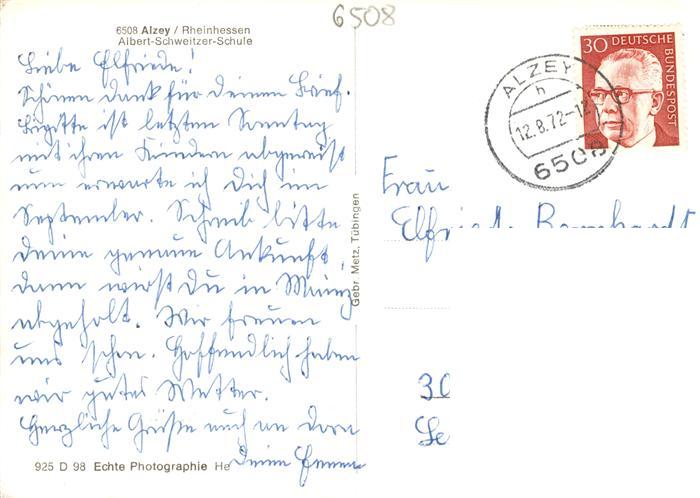 6508
6508 Alzey / Rheinhessen
Albert-Schweitzer-Schule
30 DEUTSCHE BUNDESPOST
ALZEY
h
12.8.72-12
6508
Liebe Elfriede!
Schönen Dank für Deinen Brief.
Brigitte ist letzten Sonntag
mit ihren Kindern abgereist
nun erwarte ich Dich im
September. Schreib bitte
Deine genaue Ankunft,
dann wirst Du in Mainz
abgeholt. Wir freuen
uns schon. Hoffendlich haben
wir gutes Wetter.
Herzliche Grüße auch an Dora
Deine
925 D 98 Echte Photographie He
Gebr. Metz, Tübingen
Frau
30